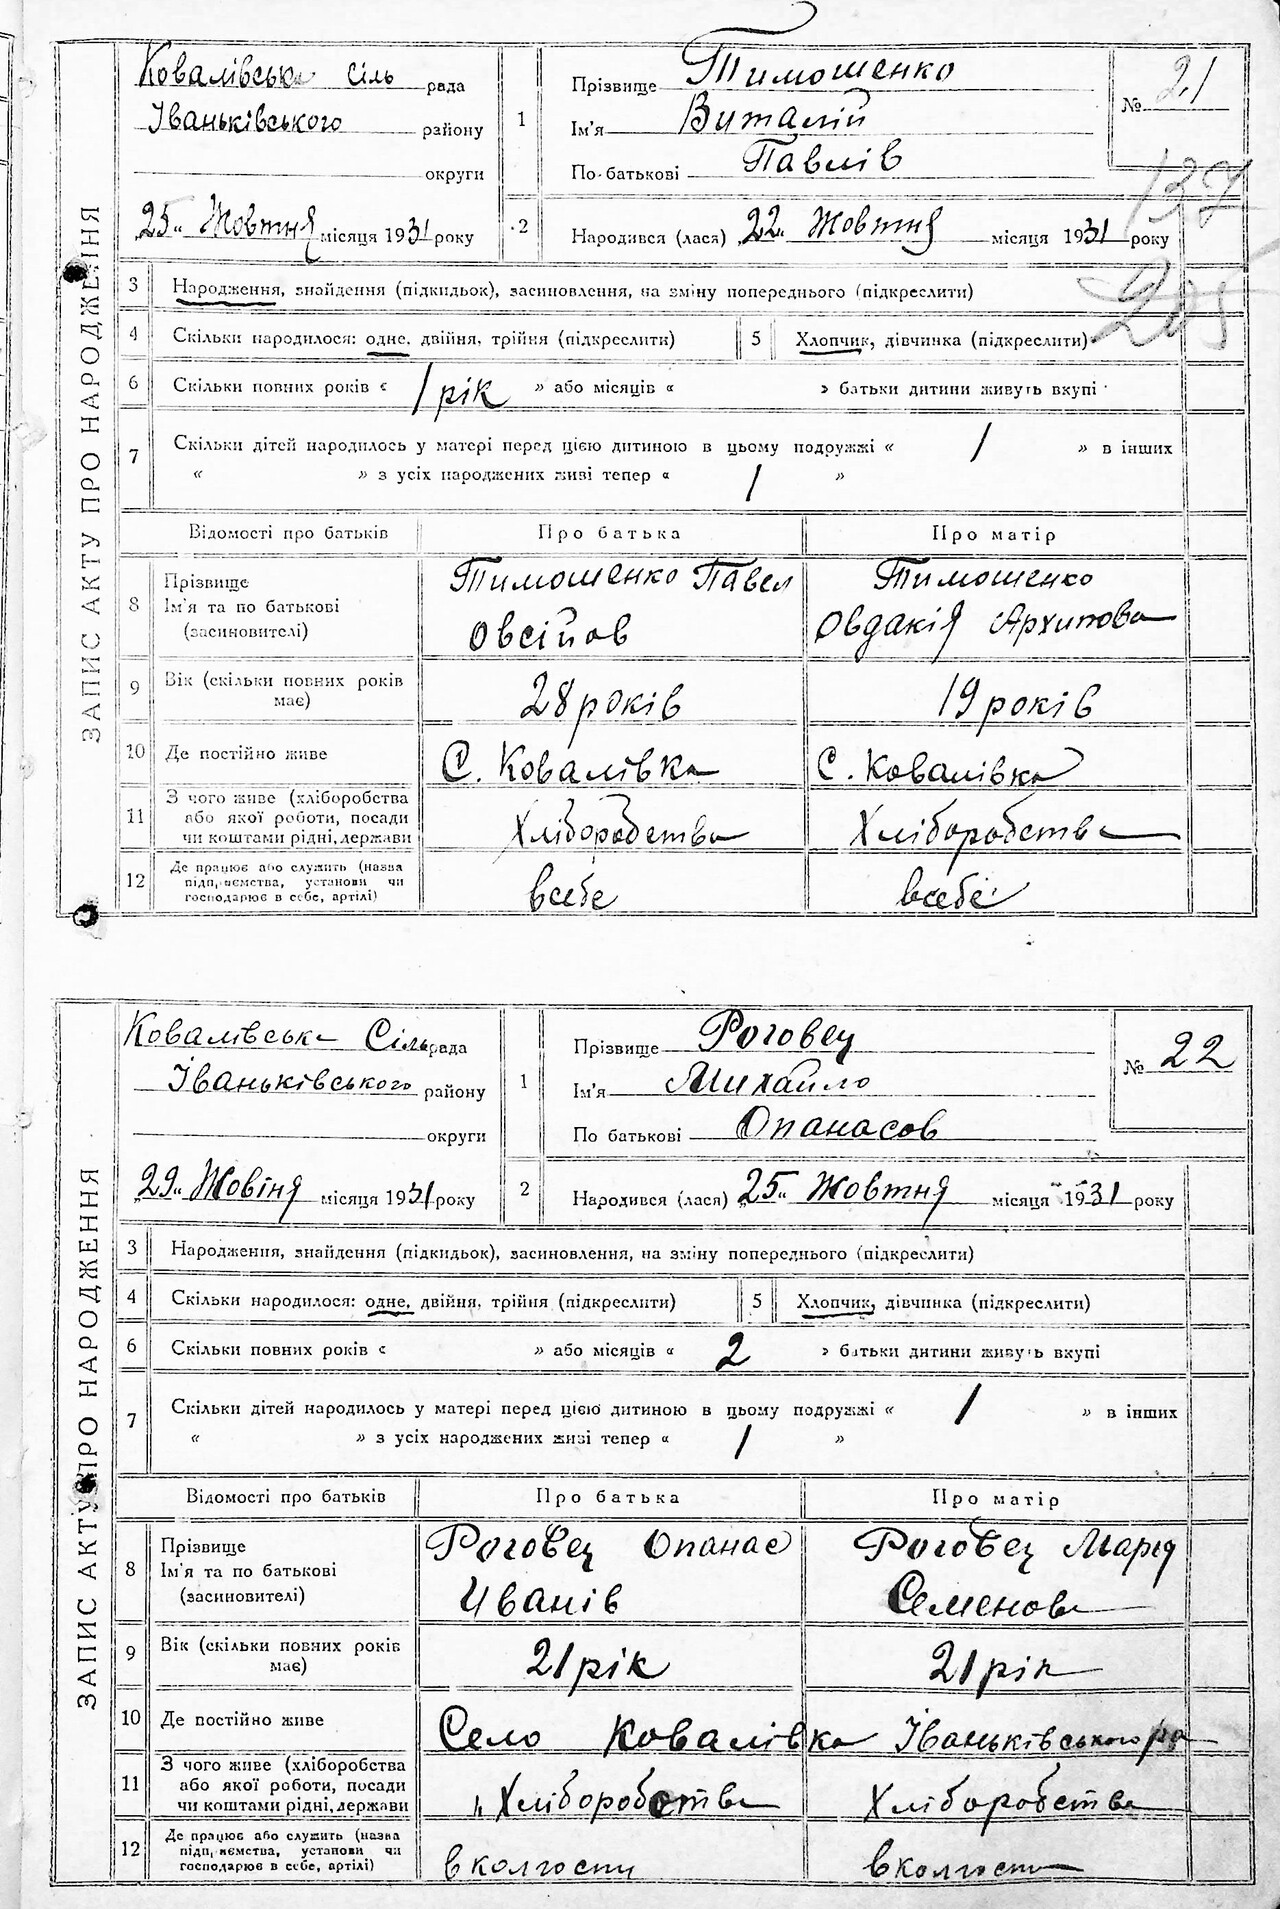 ЗАПИС АКТУ ПРО НАРОДЖЕННЯ
Ковалівська сіль рада
Іваньківського району
округи
25 " Жовтня місяця 1931 року
1
Прізвище Тимошенко
Ім'я Виталій
По-батькові Павлів
№ 21
137
205
2
Народився (лася) „22" Жовтня місяця 1931 року
3 Народження, знайдення (підкидьок), засиновлення, на зміну попереднього (підкреслити)
4 Скільки народилося: одне, двійня, трійня (підкреслити) 5 Хлопчик, дівчинка (підкреслити)
6 Скільки повних років « 1 рік » або місяців « » батьки дитини живуть вкупі
7 Скільки дітей народилось у матері перед цією дитиною в цьому подружжі « 1 » в інших
« » з усіх народжених живі тепер « 1 »
Відомості про батьків Про батька Про матір
8 Прізвище
Ім'я та по батькові
(засиновителі)
Тимошенко Павел
Овсійов
Тимошенко
Овдакія Архипова
9 Вік (скільки повних років
має)
28 років 19 років
10 Де постійно живе С. Ковалівка С. Ковалівка
11 З чого живе (хліборобства
або якої роботи, посади
чи коштами рідні, держави
Хліборобства Хліборобства
12 Де працює або служить (назва
підп,иємства, установи чи
господарює в себе, артілі)
всебе всебе
ЗАПИС АКТУ ПРО НАРОДЖЕННЯ
Ковалівська Сіль рада
Іваньківського району
округи
„29" Жовіня місяця 1931 року
1
Прізвище Роговец
Ім'я Михайло
По батькові Опанасов
№ 22
2
Народився (лася) „25" Жовтня місяця 1931 року
3 Народження, знайдення (підкидьок), засиновлення, на зміну попереднього (підкреслити)
4 Скільки народилося: одне, двійня, трійня (підкреслити) 5 Хлопчик, дівчинка (підкреслити)
6 Скільки повних років « » або місяців « 2 » батьки дитини живуть вкупі
7 Скільки дітей народилось у матері перед цією дитиною в цьому подружжі « 1 » в інших
« » з усіх народжених живі тепер « 1 »
Відомості про батьків Про батька Про матір
8 Прізвище
Ім'я та по батькові
(засиновителі)
Роговец Опанас
Иванів
Роговец Марія
Семенова
9 Вік (скільки повних років
має)
21 рік 21 рік
10 Де постійно живе Село Ковалівка Іваньківського ра
11 З чого живе (хліборобства
або якої роботи, посади
чи коштами рідні, держави
Хліборобства Хліборобства
12 Де працює або служить (назва
підп,иємства, установи чи
господарює в себе, артілі)
в колгоспи в колгоспи